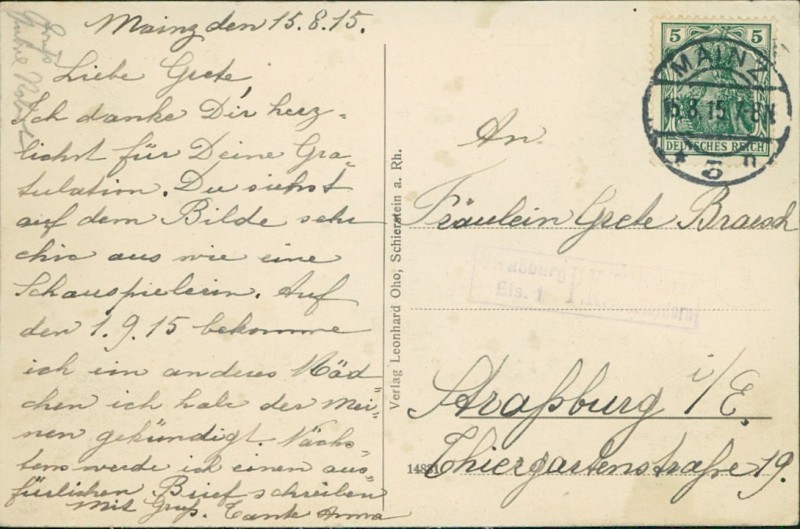 Mainz den 15.8.15.
Liebe Grete!
Ich danke Dir herz-
lichst für Deine Gra-
tulation. Du siehst
auf dem Bilde sehr
chic aus wie eine
Schauspielerin. Auf
den 1.9.15 bekomme
ich ein anderes Mäd-
chen ich habe der Mei-
nen gekündigt. Nächs-
tens werde ich einen aus-
fürlichen Brief schreiben
Mit Gruß. Tante Anna
Verlag Leonhard Oho, Schierstein a. Rh.
5 5
DEUTSCHES REICH
MAINZ
15.8.15. 7-8N
* 5 n
An
Fräulein Grete Braesch
Straßburg
Els. 1
Straßburg i/E.
Thiergartenstraße 19.